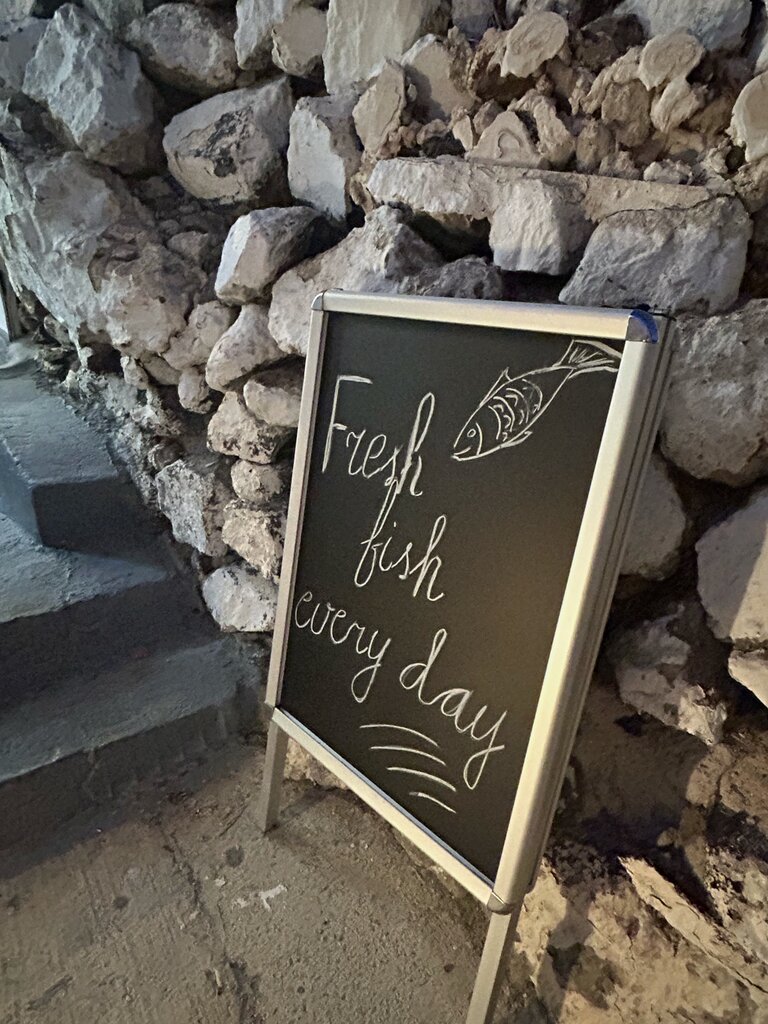 Fresh
fish
every day